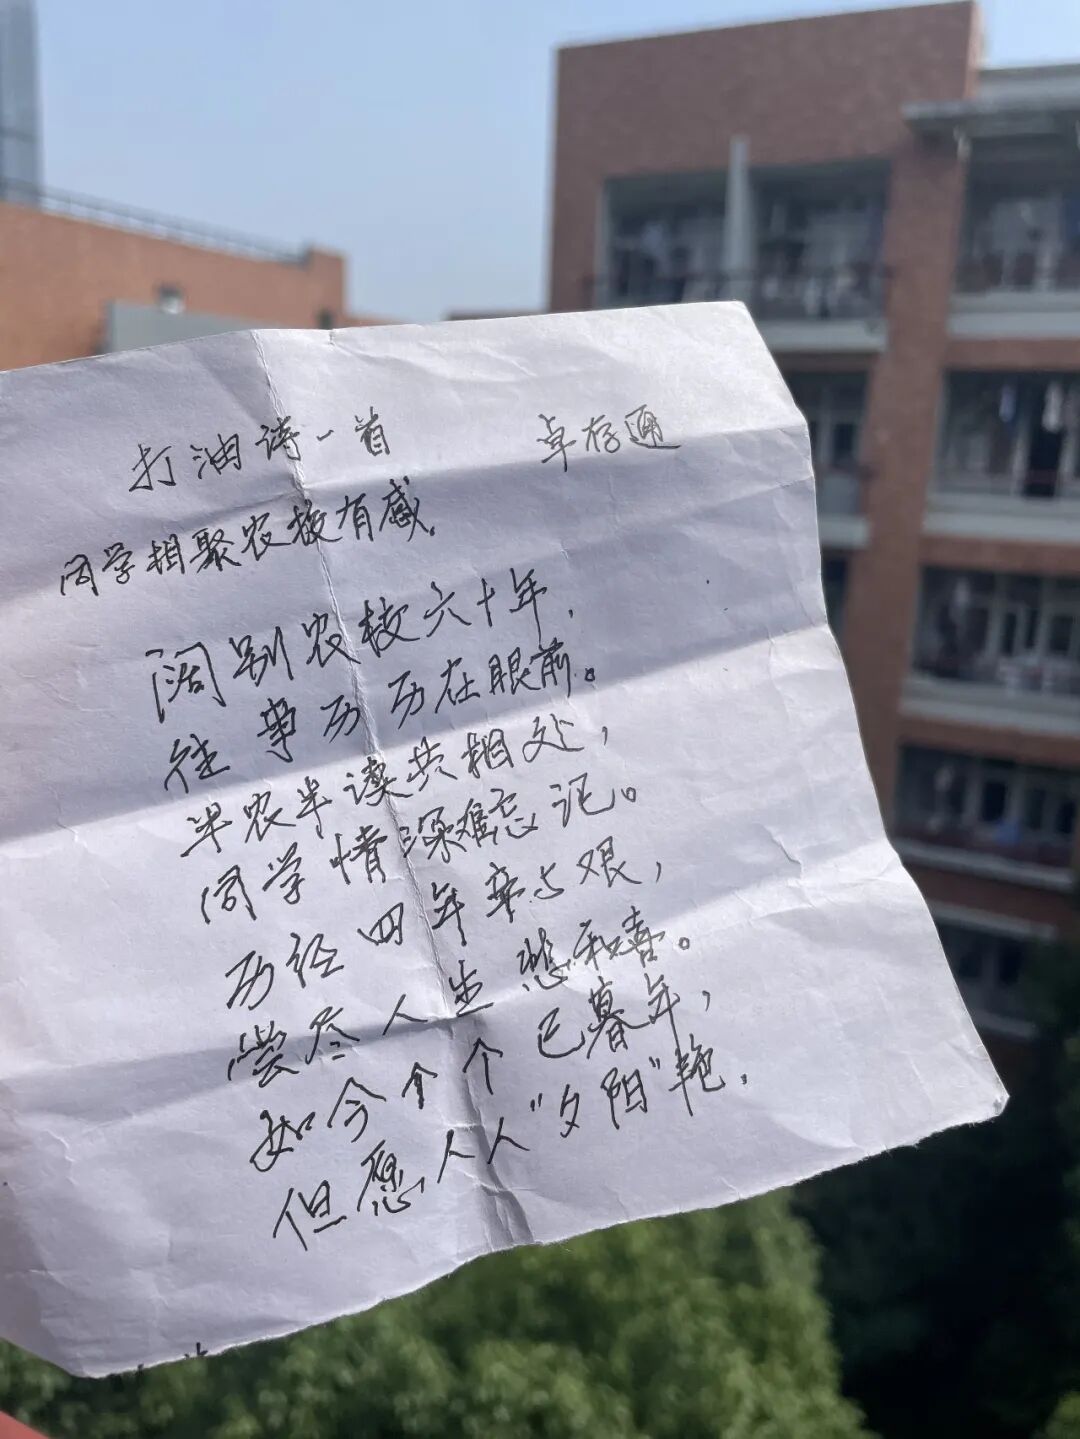 打油诗一首 卓存通
同学相聚农校有感.
阔别农校六十年,
往事历历在眼前。
半农半读共相处,
同学情深难忘记。
历经四年辛与艰,
尝尽人生悲和喜。
如今个个已暮年,
但愿人人“夕阳”艳.